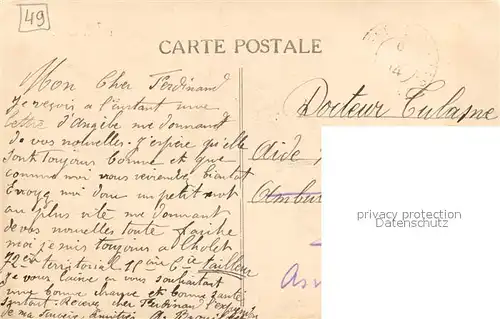 49
CARTE POSTALE
Mon Cher Ferdinand
Je reçois a l'instant une
lettre d'Angèle me donnant
de vos nouvelles. J'espère qu'elle
sont toujours bonne et que
comme moi vous reviendrez bientot
Envoyez moi donc un petit mot
au plus vite me donnant
de vos nouvelles toute
moi je suis toujours a Cholet
72em territorial 15em Cie
Je vous laisse en vous souhaitant
une bonne chance et bonne santé
cher Ferdinand
Docteur Tulasne
Aide
Ambu
privacy protection
Datenschutz